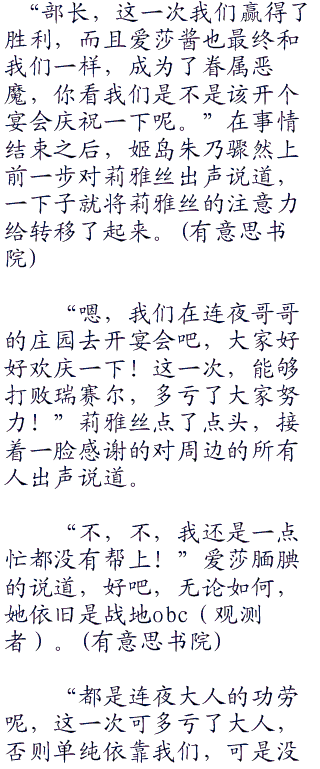 “部长，这一次我们赢得了
胜利，而且爱莎酱也最终和
我们一样，成为了眷属恶
魔，你看我们是不是该开个
宴会庆祝一下呢。”在事情
结束之后，姬岛朱乃骤然上
前一步对莉雅丝出声说道，
一下子就将莉雅丝的注意力
给转移了起来。(有意思书
院)
“嗯，我们在连夜哥哥
的庄园去开宴会吧，大家好
好欢庆一下！这一次，能够
打败瑞赛尔，多亏了大家努
力！”莉雅丝点了点头，接
着一脸感谢的对周边的所有
人出声说道。
“不，不，我还是一点
忙都没有帮上！”爱莎腼腆
的说道，好吧，无论如何，
她依旧是战地obc（观测
者）。(有意思书院)
“都是连夜大人的功劳
呢，这一次可多亏了大人，
否则单纯依靠我们，可是没